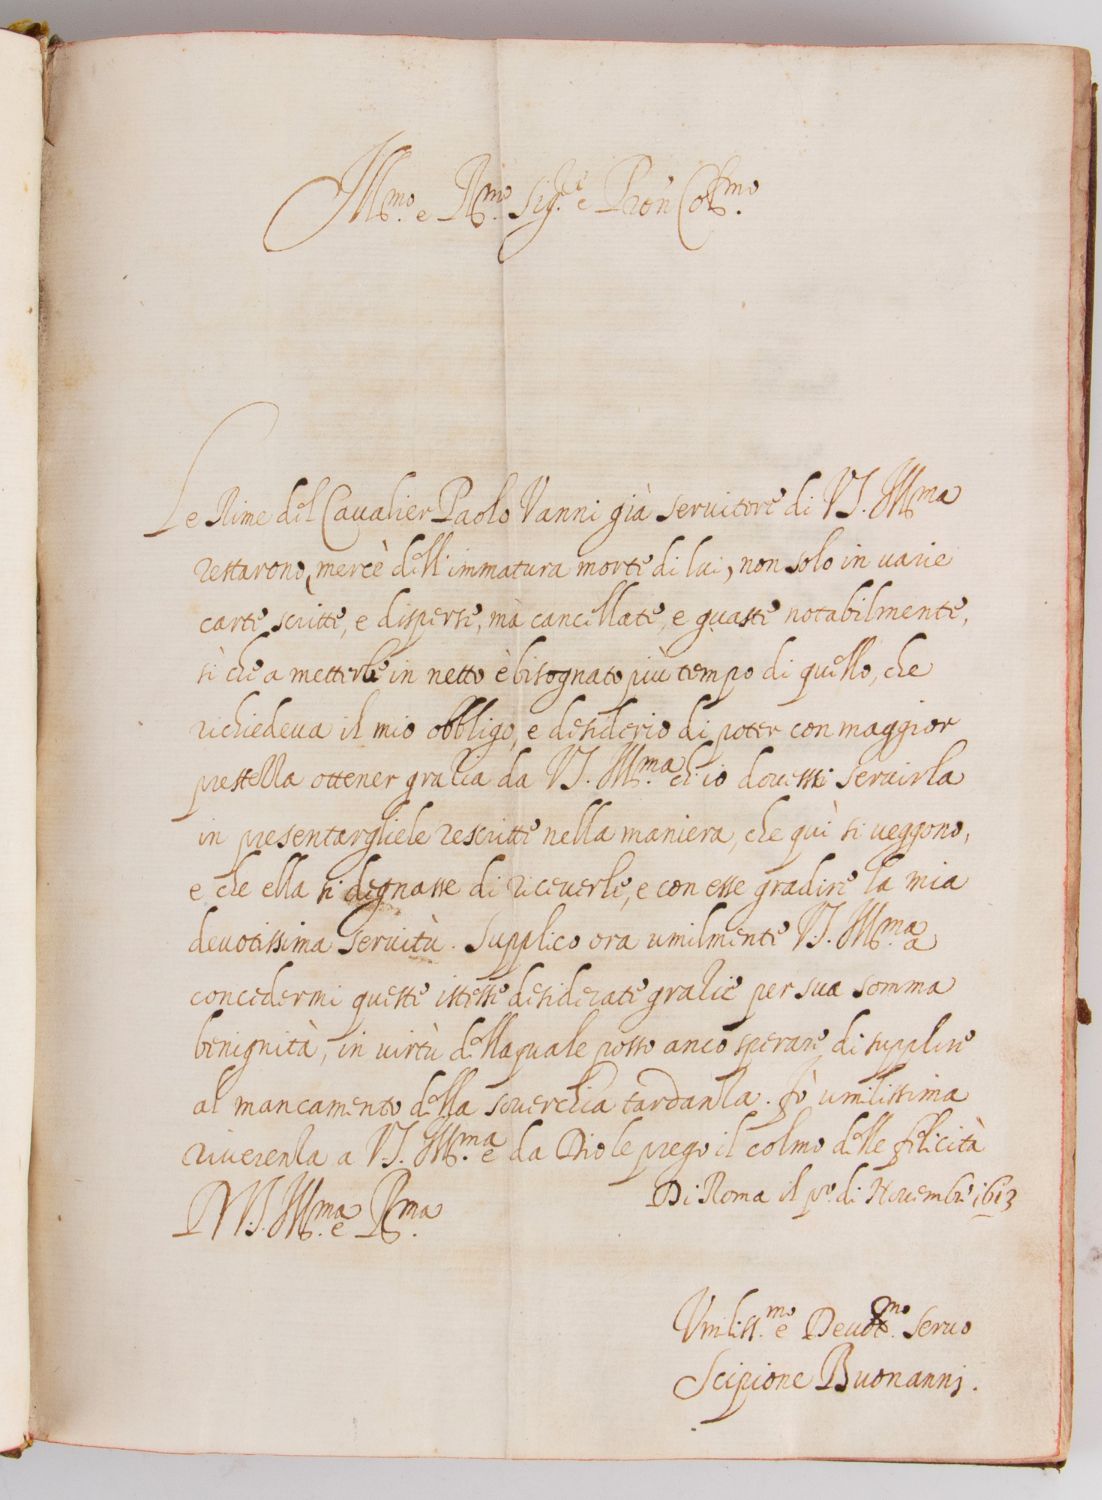 Ill.mo e R.mo Sig.re e Pron Col.mo
Le Rime del Cavalier Paolo Vanni già servitore di V.S. Ill.ma
restarono, mercè dell'immatura morte di lui, non solo in varie
carte scritte, e disperse, mà cancellate, e guaste notabilmente,
sì che a metterle in netto è bisognato più tempo di quello, che
richiedeva il mio obbligo, e desiderio di poter con maggior
prestezza ottener grazia da V.S. Ill.ma ch'io dovessi servirla
in presentargliele rescritte nella maniera, che quì si veggono,
e che ella si degnasse di riceverle, e con esse gradire la mia
devotissima servitù. Supplico ora umilmente V.S. Ill.ma a
concedermi queste istesse desiderate grazie per sua somma
benignità, in virtù della quale posso anco sperare di supplire
al mancamento della soverchia tardanza. fò umilissima
riverenza a V.S. Ill.ma e da Dio le prego il colmo delle felicità
Di Roma il p.o di Novembre 1613
D V.S. Ill.ma e R.ma
Umiliss.mo e Devot.mo Servo
Scipione Buonanni.